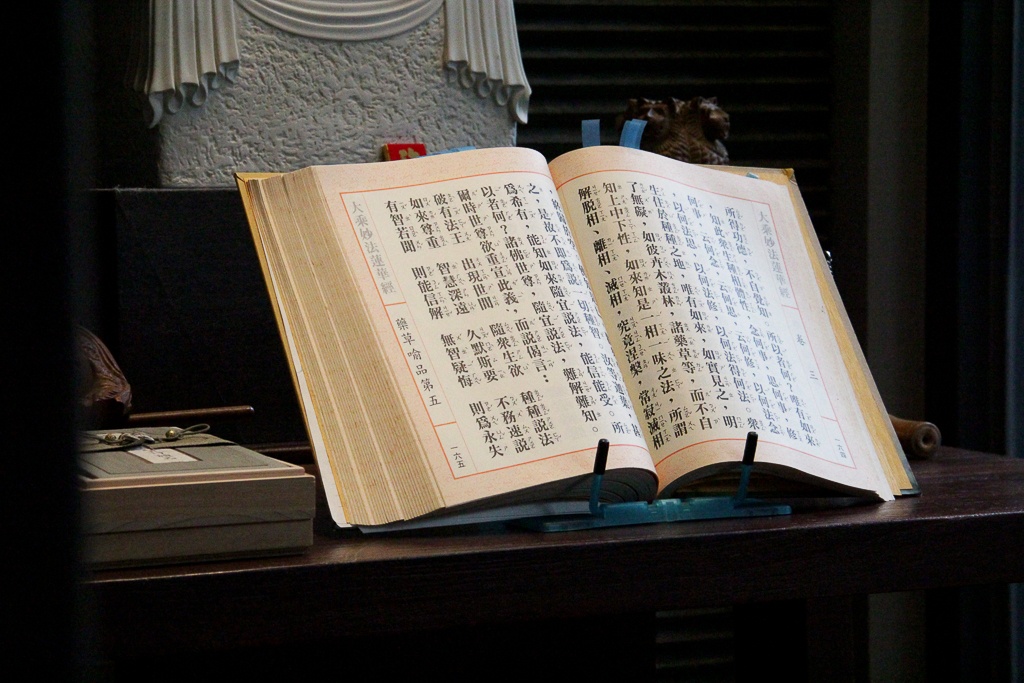 大乘妙法蓮華經 卷 三 一六四
所得功德，不自覺知。所以者何？唯有如來
知此眾生種相體性，念何事、思何事、修
何事，云何念、云何思、云何修，以何法念、
以何法思、以何法修，以何法得何法。眾
生住於種種之地，唯有如來，如實見之，明
了無礙。如彼卉木叢林，諸藥草等，而不自
知上中下性。如來知是一相一味之法，所謂
解脫相、離相、滅相，究竟涅槃，常寂滅相
之，是故不即為說一切種智。汝等迦葉，甚
為希有，能知如來隨宜說法，能信能受。所
以者何？諸佛世尊，隨宜說法，難解難知。
爾時世尊欲重宣此義，而說偈言：
破有法王 出現世間 隨眾生欲 種種說法
如來尊重 智慧深遠 久默斯要 不務速說
有智若聞 則能信解 無智疑悔 則為永失
大乘妙法蓮華經 藥草喻品第五 一六五